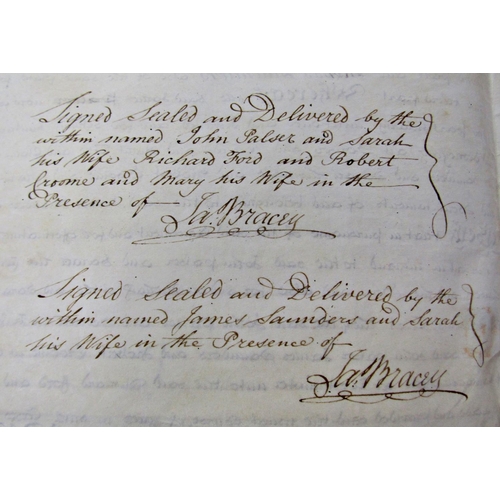 Signed Sealed and Delivered by the
within named John Palser and Sarah
his Wife Richard Ford and Robert
Croome and Mary his Wife in the
Presence of
Ja: Bracey
Signed Sealed and Delivered by the
within named James Saunders and Sarah
his Wife in the Presence of
Ja: Bracey